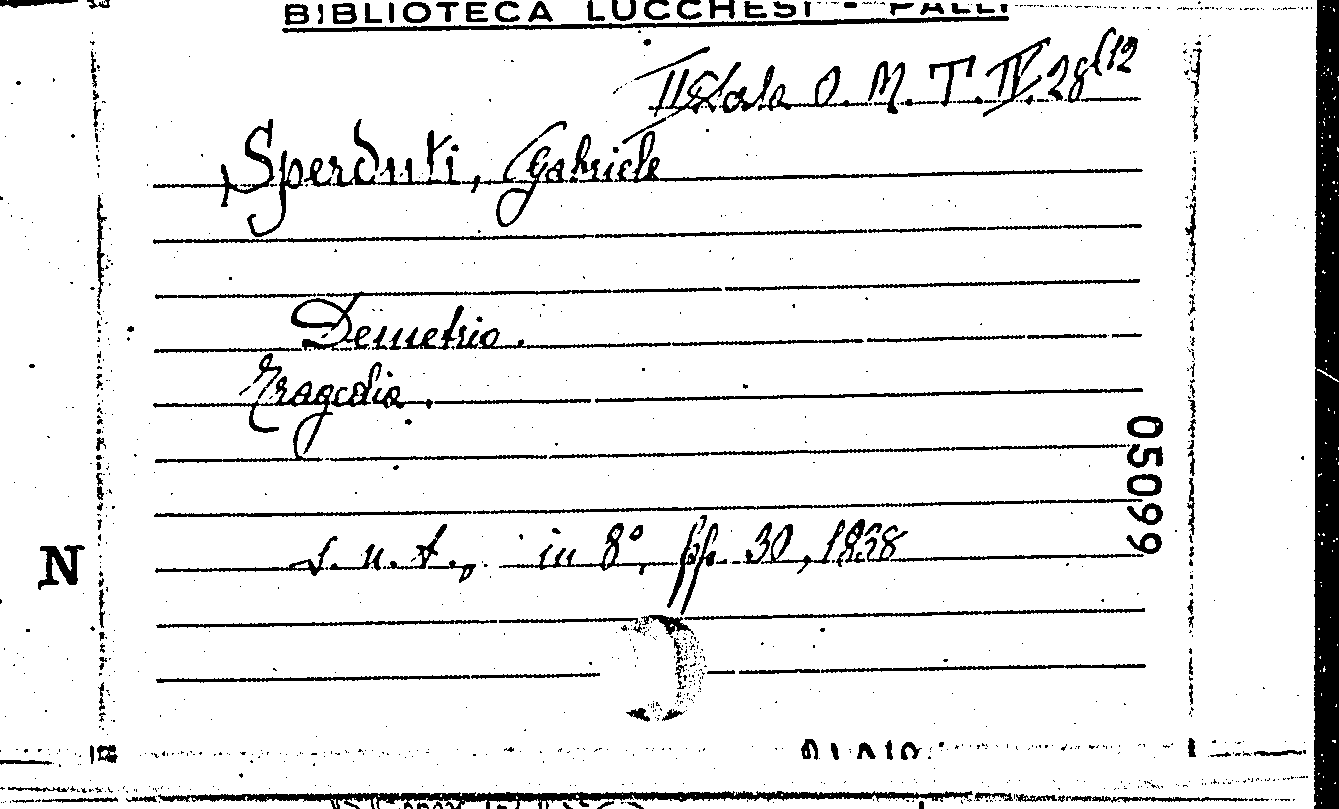 BIBLIOTECA LUCCHESI - PALLI
II Sala O. M. T. IV. 28(12
Sperduti, Gabriele
Demetrio.
Tragedia.
05099
N
s. n. t., in 8°, pp. 30, 1838